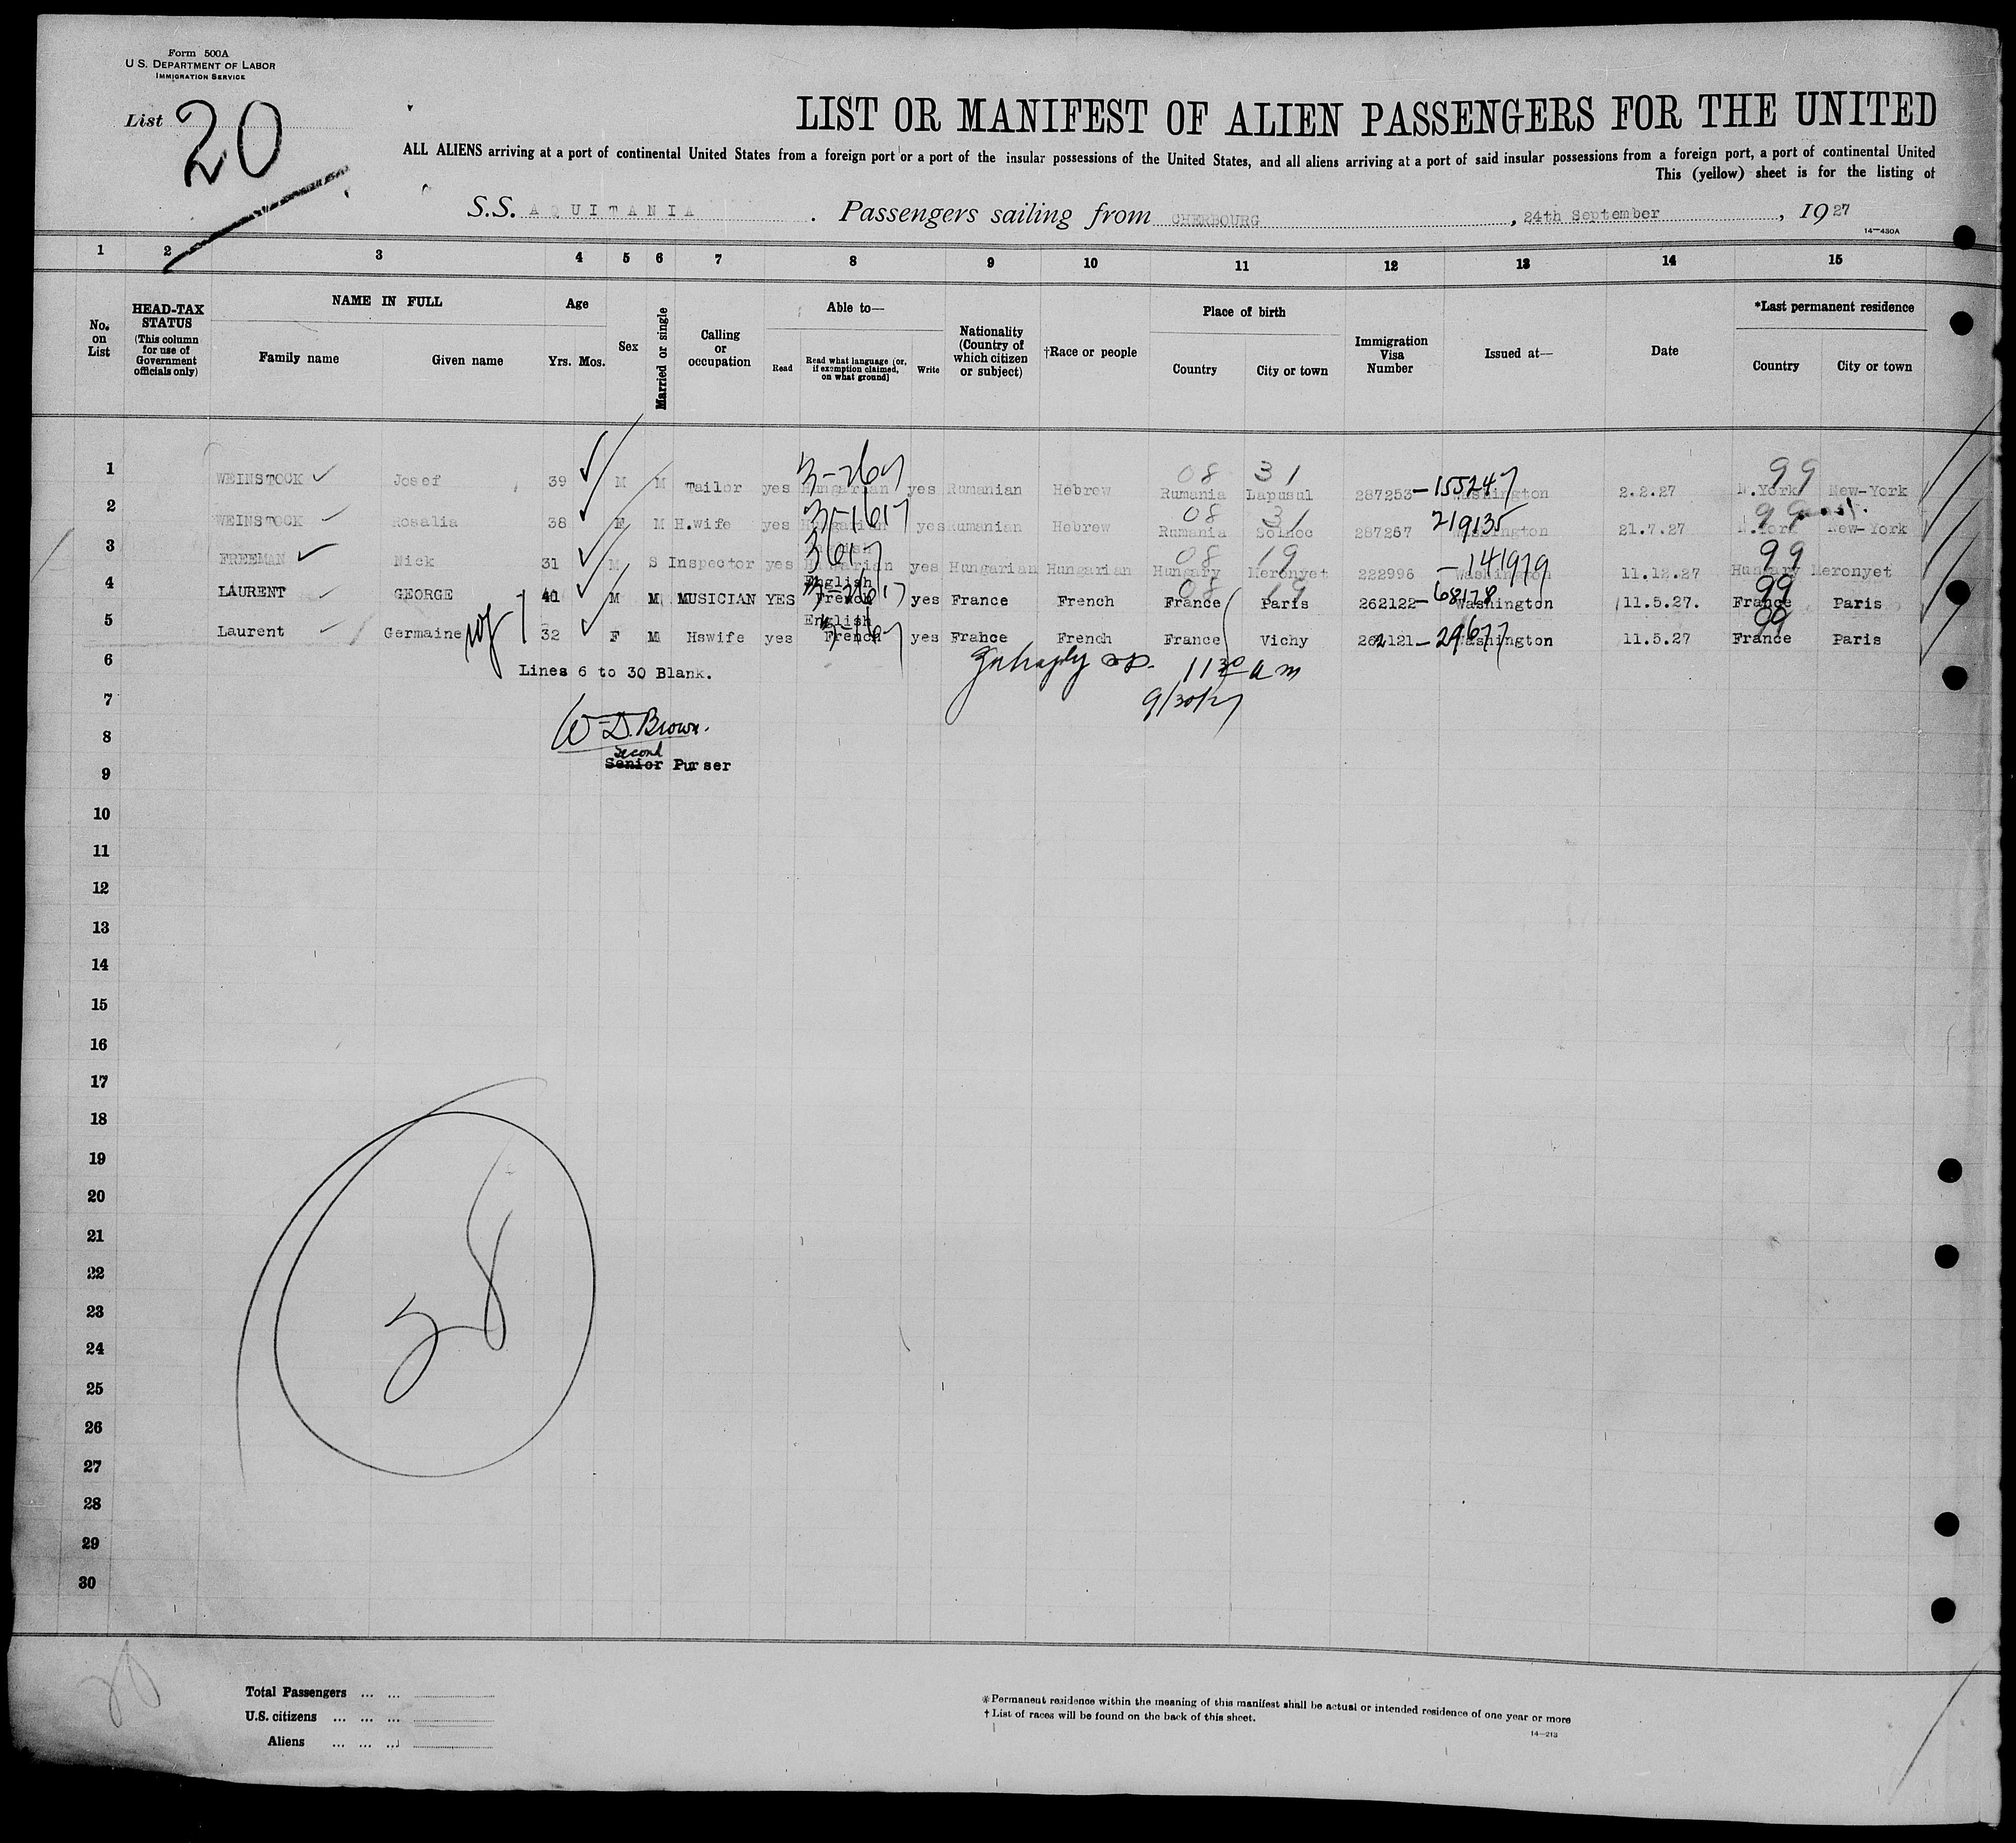 Form 500A
U.S. DEPARTMENT OF LABOR
IMMIGRATION SERVICE
List 20
LIST OR MANIFEST OF ALIEN PASSENGERS FOR THE UNITED
ALL ALIENS arriving at a port of continental United States from a foreign port or a port of the insular possessions of the United States, and all aliens arriving at a port of said insular possessions from a foreign port, a port of continental United
This (yellow) sheet is for the listing of
S.S. AQUITANIA . Passengers sailing from CHERBOURG , 24th September , 1927
14—430A
1 2 3 4 5 6 7 8 9 10 11 12 13 14 15
No. on List
HEAD-TAX STATUS (This column for use of Government officials only)
NAME IN FULL
Family name Given name
Age
Yrs. Mos.
Sex
Married or single
Calling or occupation
Able to—
Read
Read what language (or, if exemption claimed, on what ground)
Write
Nationality (Country of which citizen or subject)
†Race or people
Place of birth
Country City or town
Immigration Visa Number
Issued at—
Date
*Last permanent residence
Country City or town
3-267 08 31 155247 99
1 WEINSTOCK Josef 39 M M Tailor yes Hungarian yes Rumanian Hebrew Rumania Lapusul 287253— Washington 2.2.27 N.York New-York
3-1617 08 31 219135 99
2 WEINSTOCK Rosalia 38 F M H.wife yes Hungarian yes Rumanian Hebrew Rumania Solnoc 287267 Washington 21.7.27 N.York New-York
3617 08 19 —141979 99
3 FREEMAN Nick 31 M S Inspector yes Hungarian yes Hungarian Hungarian Hungary Meronyet 222996 Washington 11.12.27 Hungary Meronyet
English 08 19 68178 99
4 LAURENT GEORGE 41 M M MUSICIAN YES French yes France French France Paris 262122— Washington 11.5.27. France Paris
English 29677 99
5 Laurent Germaine 32 F M Hswife yes French yes France French France Vichy 262121— Washington 11.5.27 France Paris
6 Lines 6 to 30 Blank.
1130 am
7 9/30/27
W. D. Brown.
8 Second
9 Senior Purser
10
11
12
13
14
15
16
17
18
19
20
21
22
23
24
25
26
27
28
29
30
Total Passengers ... ...
U.S. citizens ... ... ...
Aliens ... ... ...
*Permanent residence within the meaning of this manifest shall be actual or intended residence of one year or more
† List of races will be found on the back of this sheet.
14—213